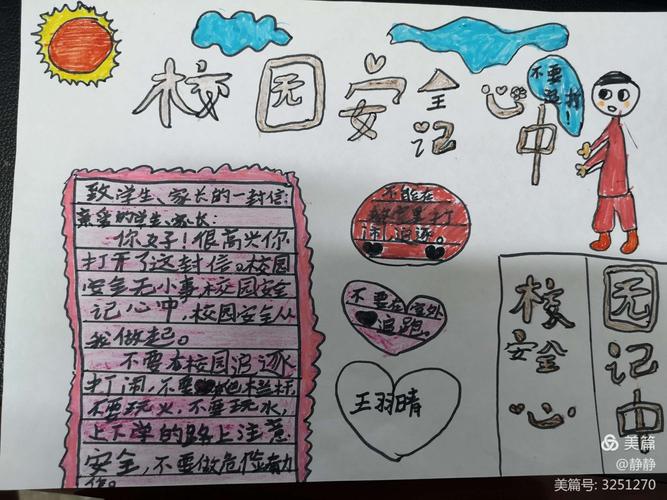 校园安全记心中
不要
追打!
致学生、家长的一封信:
亲爱的学生、家长:
你好!很高兴你
打开了这封信。校园
安全无小事校园安全
记心中,校园安全从
我做起。
不要在校园追逐
打闹,不要
不要玩火,不要玩水,
上下学的路上注意
安全,不要做危险动
作。
不能在
教室里打
闹追逐。
不要在室外
追跑。
王羽晴
校园
安全记
心中
美篇
@静静
美篇号: 3251270